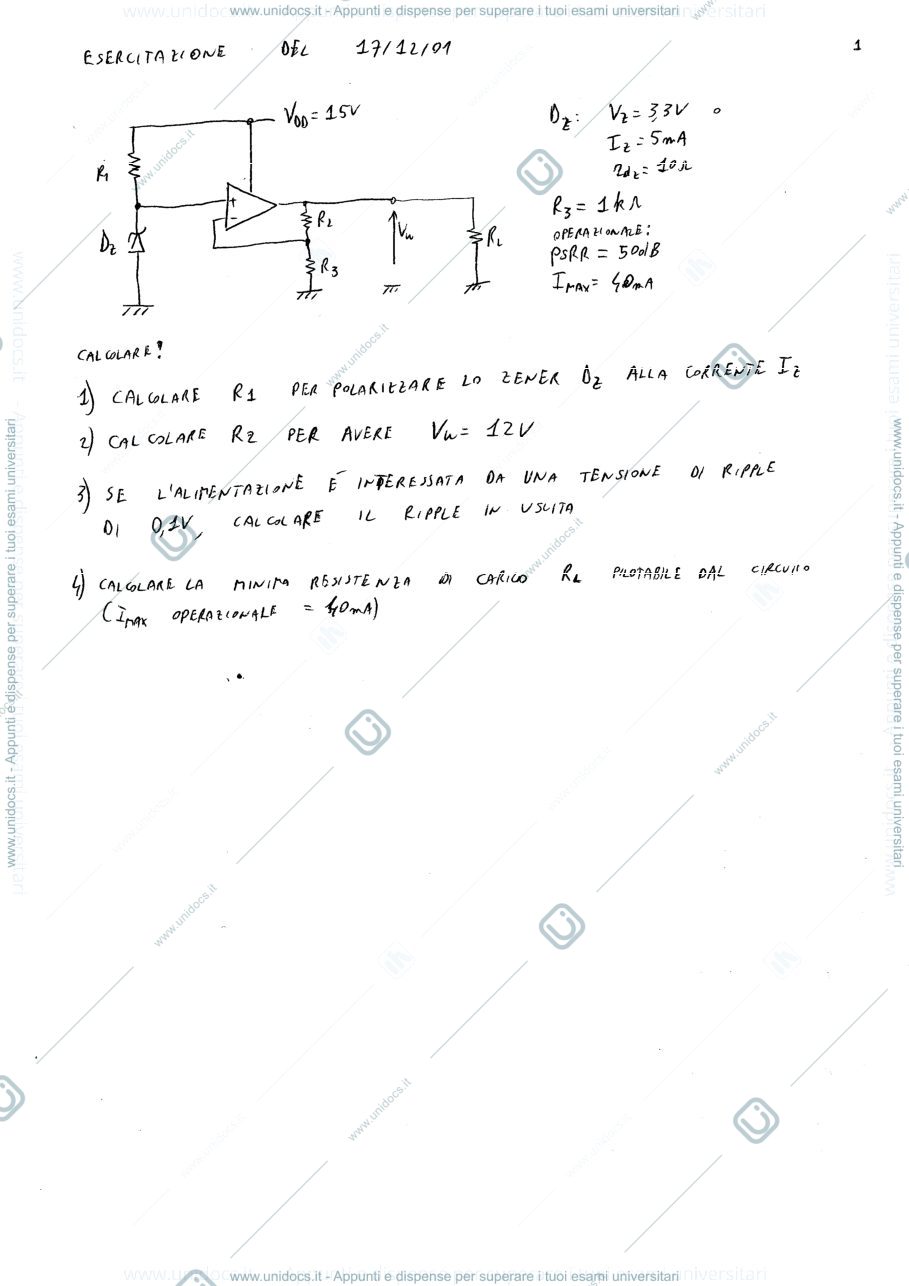 www.unidocs.it - Appunti e dispense per superare i tuoi esami universitari
ESERCITAZIONE DEL 17/12/01
1
VDD = 15V
R1
Dz
+
-
R2
R3
Vu
RL
Dz: Vz = 3,3V
Iz = 5mA
rdz = 10Ω
R3 = 1kΩ
OPERAZIONALE:
PSRR = 50dB
IMAX = 40mA
CALCOLARE!
1) CALCOLARE R1 PER POLARIZZARE LO ZENER Dz ALLA CORRENTE Iz
2) CALCOLARE R2 PER AVERE Vu = 12V
3) SE L'ALIMENTAZIONE È INTERESSATA DA UNA TENSIONE DI RIPPLE
DI 0,1V, CALCOLARE IL RIPPLE IN USCITA
4) CALCOLARE LA MINIMA RESISTENZA DI CARICO RL PILOTABILE DAL CIRCUITO
(IMAX OPERAZIONALE = 40mA)
www.unidocs.it
www.unidocs.it
www.unidocs.it
www.unidocs.it
www.unidocs.it
www.unidocs.it - Appunti e dispense per superare i tuoi esami universitari
www.unidocs.it - Appunti e dispense per superare i tuoi esami universitari
www.unidocs.it - Appunti e dispense per superare i tuoi esami universitari